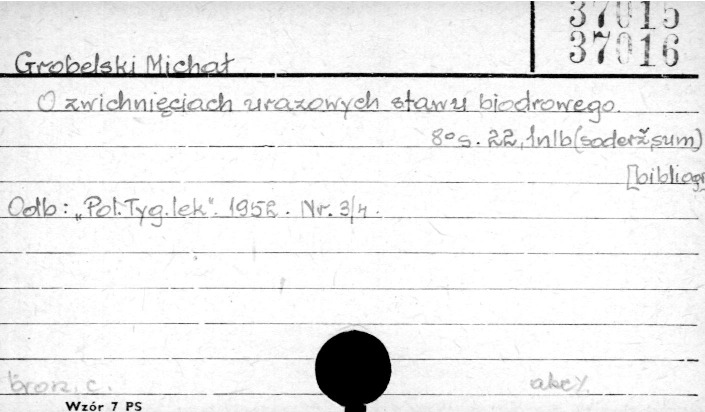 37015
37016
Grobelski Michał
O zwichnięciach urazowych stawu biodrowego.
8° s. 22, 1nlb (soderž, sum)
[bibliogr
Odb: „Pol. Tyg. lek". 1952. Nr. 3/4.
broz. c.
akc.
Wzór 7 PS